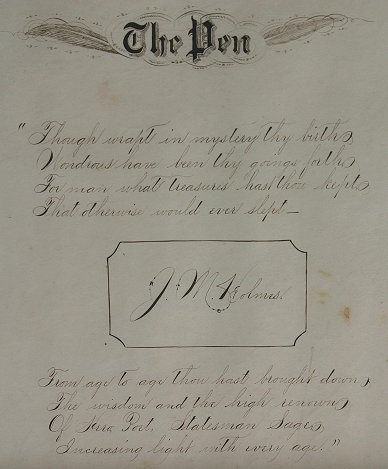 The Pen
"Though wrapt in mystery thy birth,
Wondrous have been thy goings forth,
For man what treasures hast thou kept,
That otherwise would ever slept—
J. M. Holmes.
From age to age thou hast brought down,
The wisdom and the high renown,
Of Hero, Poet, Statesman, Sage,
Increasing light with every age."